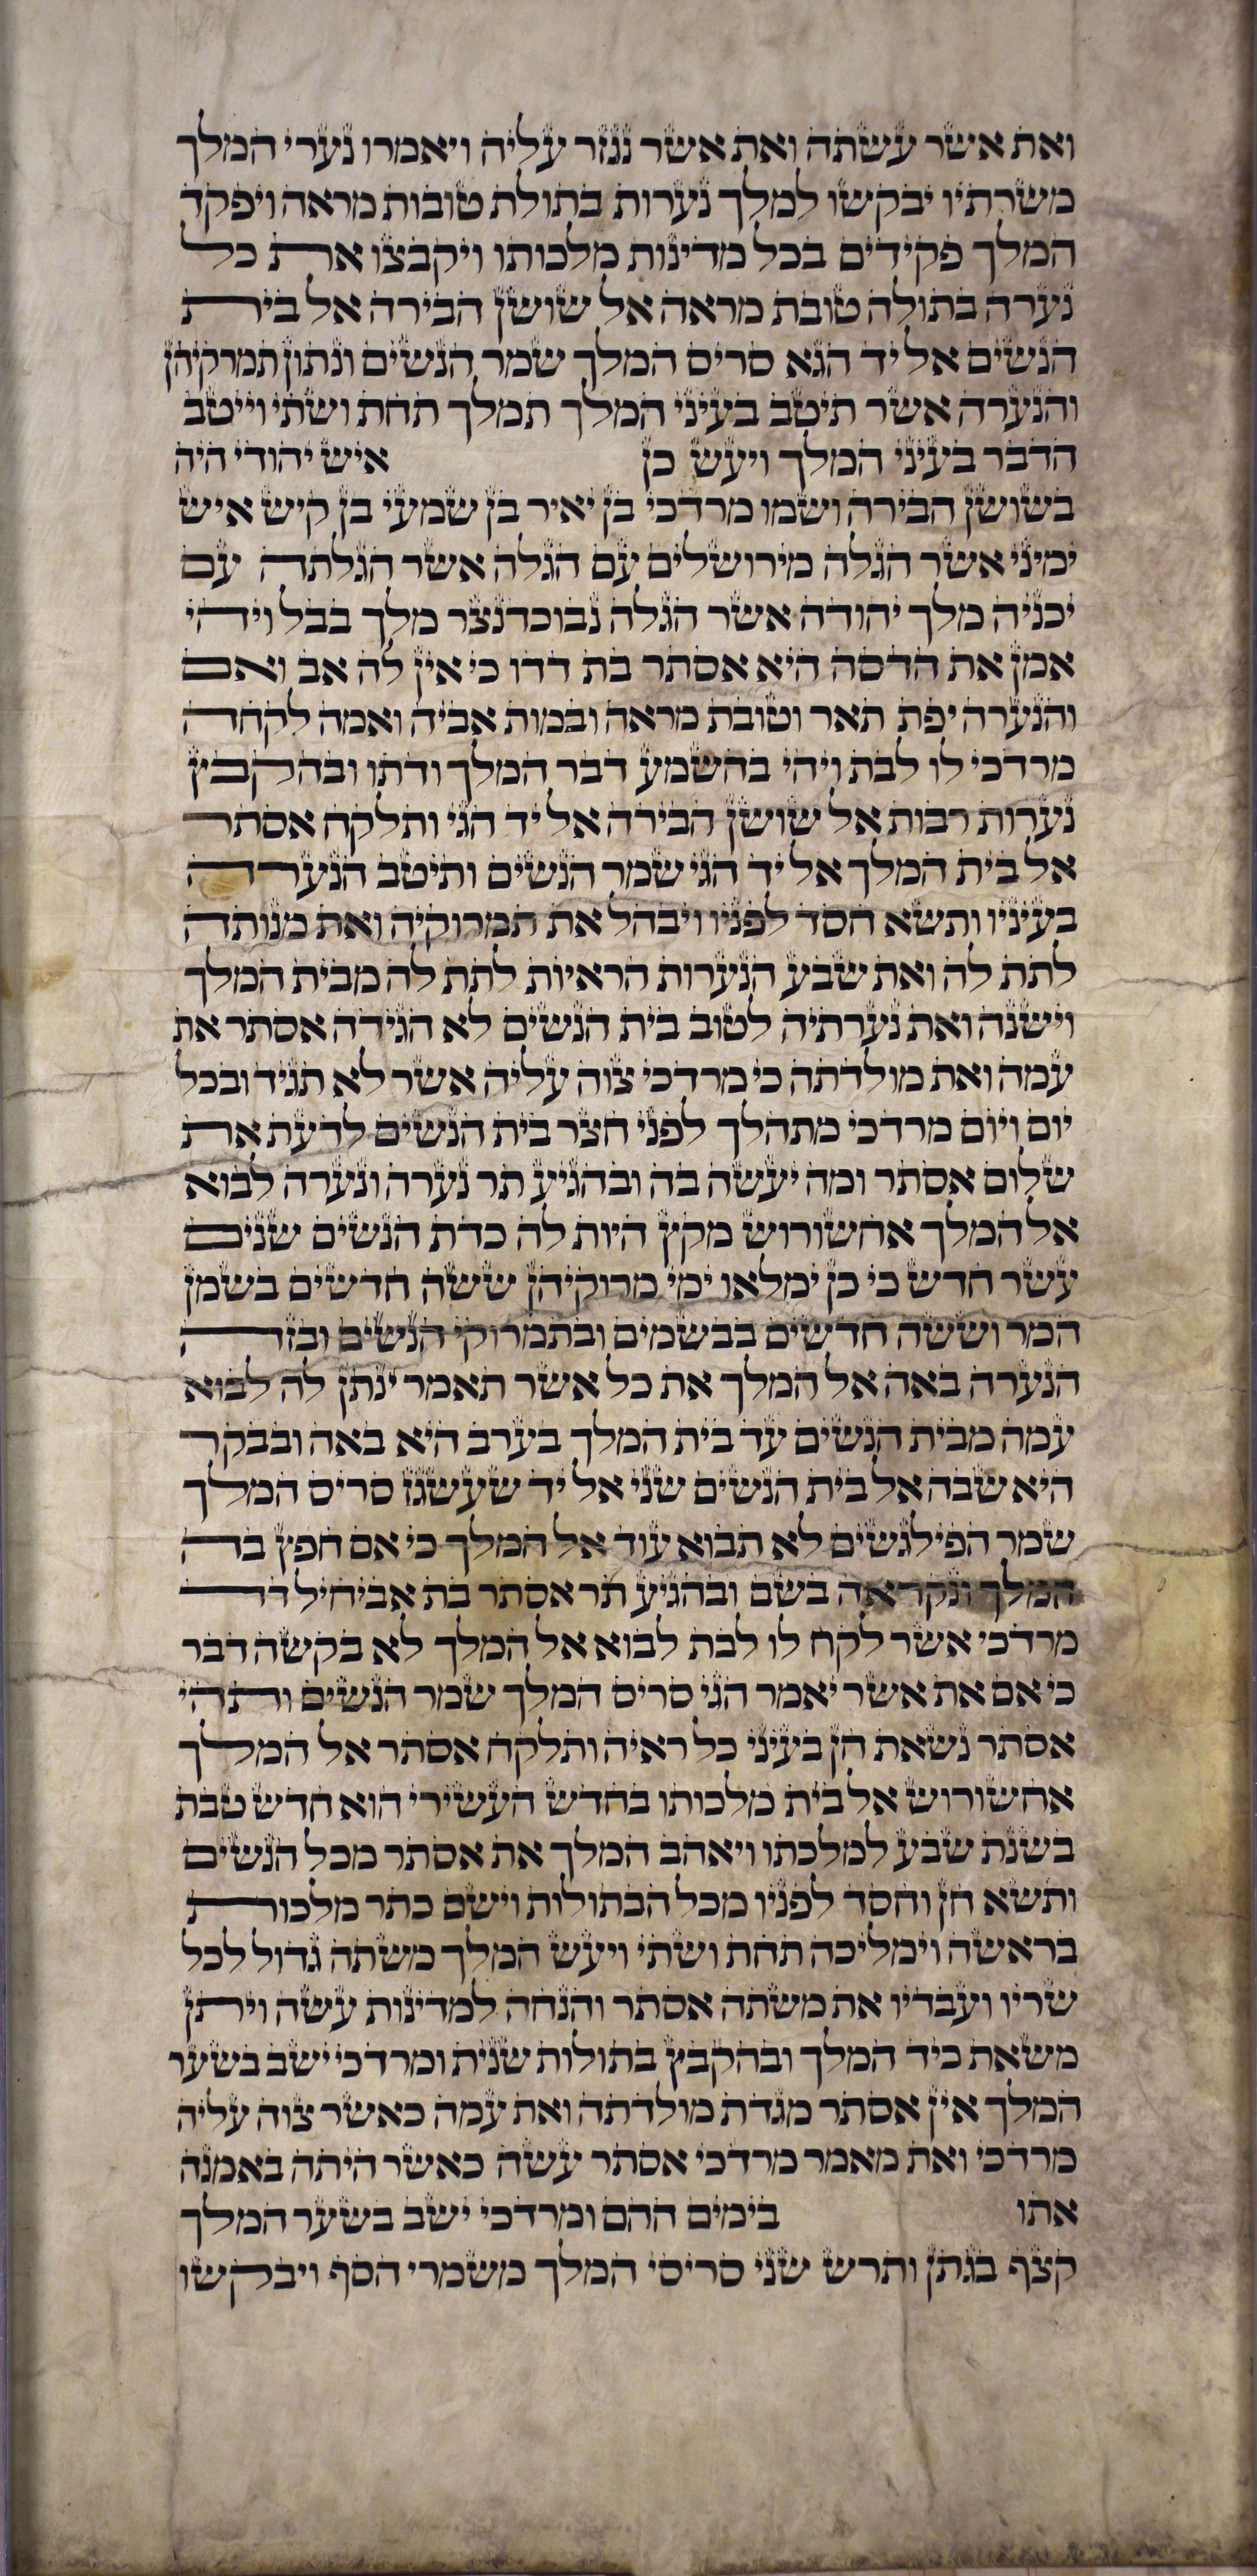 ואת אשר עשתה ואת אשר נגזר עליה ויאמרו נערי המלך
משרתיו יבקשו למלך נערות בתולת טובות מראה ויפקד
המלך פקידים בכל מדינות מלכותו ויקבצו את כל
נערה בתולה טובת מראה אל שושן הבירה אל בית
הנשים אל יד הגא סריס המלך שמר הנשים ונתון תמרקיהן
והנערה אשר תיטב בעיני המלך תמלך תחת ושתי וייטב
הדבר בעיני המלך ויעש כן איש יהודי היה
בשושן הבירה ושמו מרדכי בן יאיר בן שמעי בן קיש איש
ימיני אשר הגלה מירושלים עם הגלה אשר הגלתה עם
יכניה מלך יהודה אשר הגלה נבוכדנצר מלך בבל ויהי
אמן את הדסה היא אסתר בת דדו כי אין לה אב ואם
והנערה יפת תאר וטובת מראה ובמות אביה ואמה לקחה
מרדכי לו לבת ויהי בהשמע דבר המלך ודתו ובהקבץ
נערות רבות אל שושן הבירה אל יד הגי ותלקח אסתר
אל בית המלך אל יד הגי שמר הנשים ותיטב הנערה
בעיניו ותשא חסד לפניו ויבהל את תמרוקיה ואת מנותה
לתת לה ואת שבע הנערות הראיות לתת לה מבית המלך
וישנה ואת נערתיה לטוב בית הנשים לא הגידה אסתר את
עמה ואת מולדתה כי מרדכי צוה עליה אשר לא תגיד ובכל
יום ויום מרדכי מתהלך לפני חצר בית הנשים לדעת את
שלום אסתר ומה יעשה בה ובהגיע תר נערה ונערה לבוא
אל המלך אחשורוש מקץ היות לה כדת הנשים שנים
עשר חדש כי כן ימלאו ימי מרוקיהן ששה חדשים בשמן
המר וששה חדשים בבשמים ובתמרוקי הנשים ובזה
הנערה באה אל המלך את כל אשר תאמר ינתן לה לבוא
עמה מבית הנשים עד בית המלך בערב היא באה ובבקר
היא שבה אל בית הנשים שני אל יד שעשגז סריס המלך
שמר הפילגשים לא תבוא עוד אל המלך כי אם חפץ בה
המלך ונקראה בשם ובהגיע תר אסתר בת אביחיל דד
מרדכי אשר לקח לו לבת לבוא אל המלך לא בקשה דבר
כי אם את אשר יאמר הגי סריס המלך שמר הנשים ותהי
אסתר נשאת חן בעיני כל ראיה ותלקח אסתר אל המלך
אחשורוש אל בית מלכותו בחדש העשירי הוא חדש טבת
בשנת שבע למלכתו ויאהב המלך את אסתר מכל הנשים
ותשא חן וחסד לפניו מכל הבתולות וישם כתר מלכות
בראשה וימליכה תחת ושתי ויעש המלך משתה גדול לכל
שריו ועבדיו את משתה אסתר והנחה למדינות עשה ויתן
משאת כיד המלך ובהקבץ בתולות שנית ומרדכי ישב בשער
המלך אין אסתר מגדת מולדתה ואת עמה כאשר צוה עליה
מרדכי ואת מאמר מרדכי אסתר עשה כאשר היתה באמנה
אתו בימים ההם ומרדכי ישב בשער המלך
קצף בגתן ותרש שני סריסי המלך משמרי הסף ויבקשו